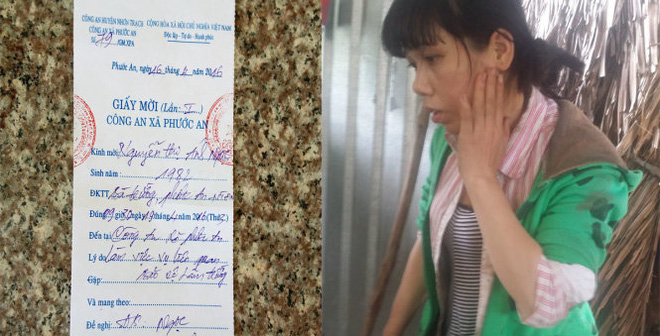 CÔNG AN HUYỆN NHƠN TRẠCH CỘNG HÒA XÃ HỘI CHỦ NGHĨA VIỆT NAM
CÔNG AN XÃ PHƯỚC AN Độc lập - Tự do - Hạnh phúc
Số 79 /GM.XPA
Phước An, ngày 16 tháng 4 năm 2016
GIẤY MỜI (Lần: I)
CÔNG AN XÃ PHƯỚC AN
Kính mời Nguyễn thị Ánh Ngọc
Sinh năm : 1983
ĐKTT phước An
Đúng 09 giờ ngày 19 tháng 4 năm 2016 (Thứ
Đến tại Công An xã phước An
Lý do Làm việc vụ liên quan
Gặp:
Và mang theo:
Đề nghị: Ngọc